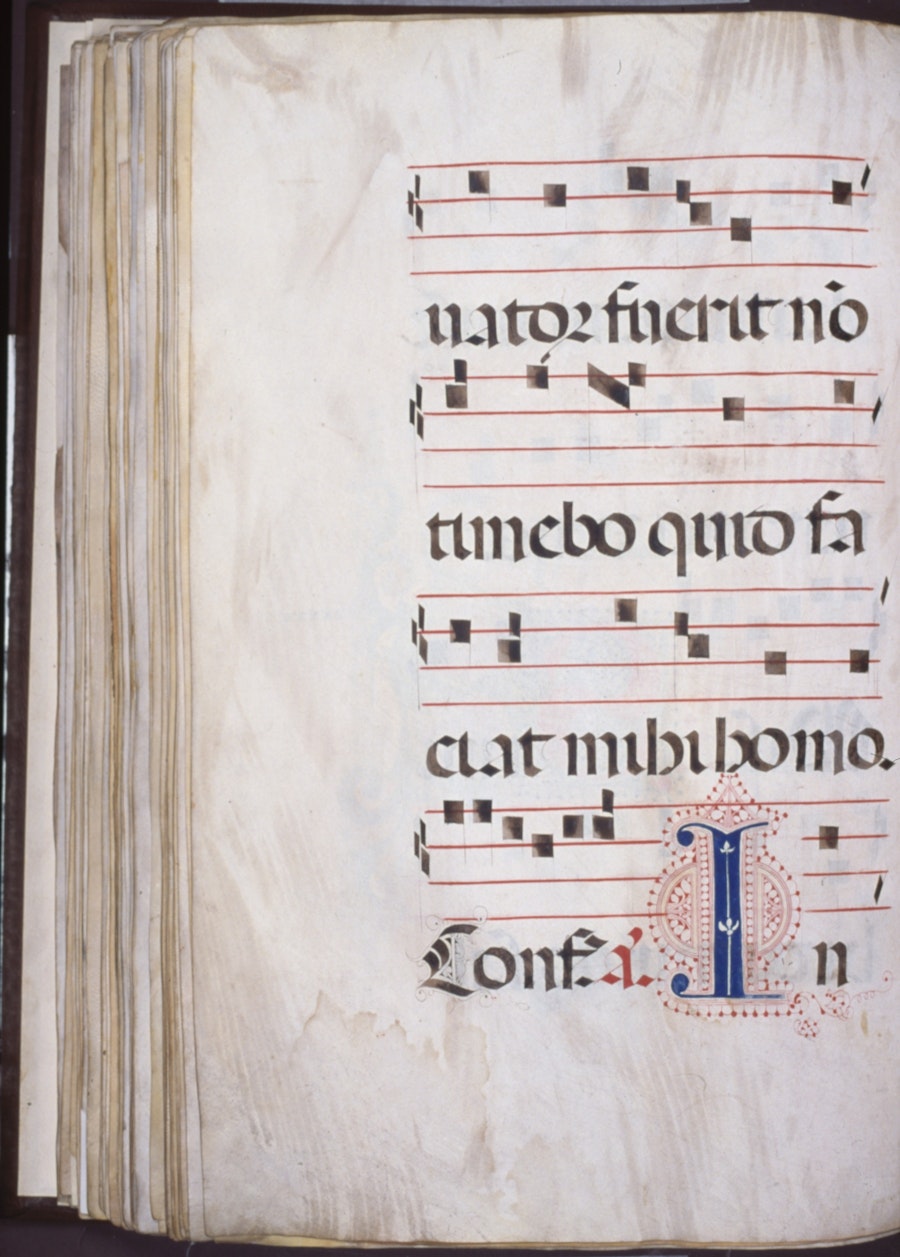 nator fuerit nõ
timebo quid fa
ciat mihi homo.
Conf. a. In